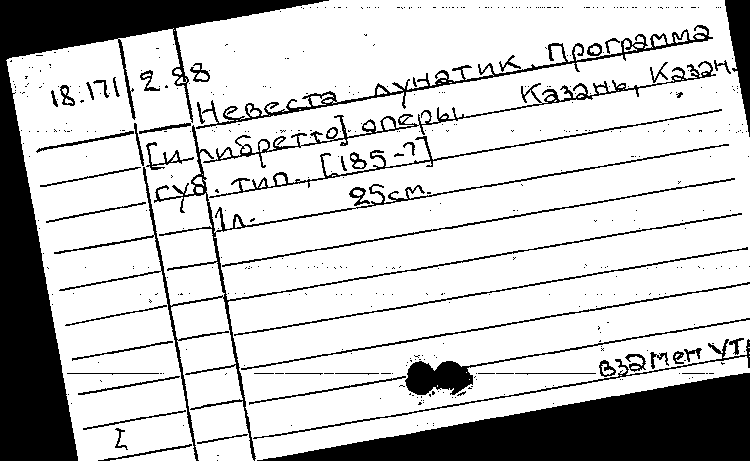 18.171.2.88
Невеста лунатик. Программа
[и либретто] оперы. Казань, Казан.
губ. тип., [185-?]
1л. 25см.
взамен утр